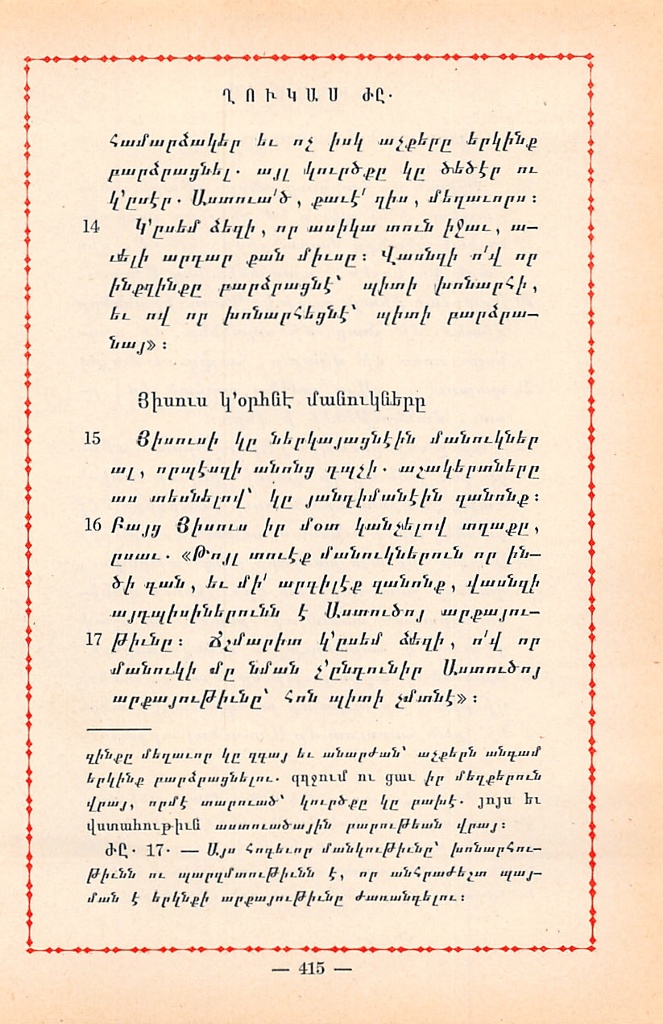 ՂՈՒԿԱՍ ԺԸ.
համարձակեր եւ ոչ իսկ աչքերը երկինք
բարձրացնել. այլ կուրծքը կը ծեծէր ու
կ՚ըսէր. Աստուա՛ծ, քաւէ՛ զիս, մեղաւորս։
14 Կ՚ըսեմ ձեզի, որ ասիկա տուն իջաւ, ա-
ւելի արդար քան միւսը։ Վասնզի ո՛վ որ
ինքզինքը բարձրացնէ՝ պիտի խոնարհի,
եւ ով որ խոնարհեցնէ՝ պիտի բարձրա-
նայ»։
Յիսուս կ՚օրհնէ մանուկները
15 Յիսուսի կը ներկայացնէին մանուկներ
ալ, որպէսզի անոնց դպչի. աշակերտները
աս տեսնելով՝ կը յանդիմանէին զանոնք։
16 Բայց Յիսուս իր մօտ կանչելով տղաքը,
ըսաւ. «Թոյլ տուէք մանուկներուն որ ին-
ծի գան, եւ մի՛ արգիլէք զանոնք, վասնզի
այդպիսիներունն է Աստուծոյ արքայու-
17 թիւնը։ Ճշմարիտ կ՚ըսեմ ձեզի, ո՛վ որ
մանուկի մը նման չ՚ընդունիր Աստուծոյ
արքայութիւնը՝ հոն պիտի չմտնէ»։
զինքը մեղաւոր կը զգայ եւ անարժան՝ աչքերն անգամ
երկինք բարձրացնելու. զղջում ու ցաւ իր մեղքերուն
վրայ, որմէ տարուած՝ կուրծքը կը բախէ. յոյս եւ
վստահութիւն աստուածային բարութեան վրայ։
ԺԸ. 17. — Այս հոգեւոր մանկութիւնը՝ խոնարհու-
թիւնն ու պարզմտութիւնն է, որ անհրաժեշտ պայ-
ման է երկնքի արքայութիւնը ժառանգելու։
— 415 —